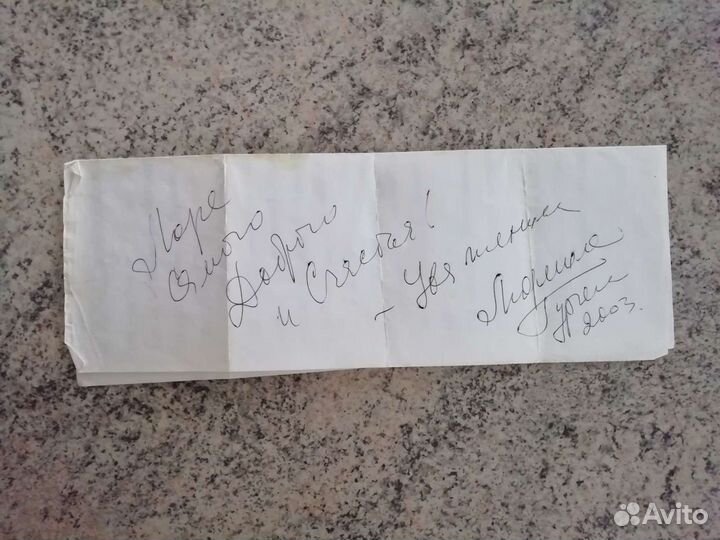 Ларе
самого
Доброго
и Счастья!
~ Уважением
Людмила
Гурченко
2003.
Avito